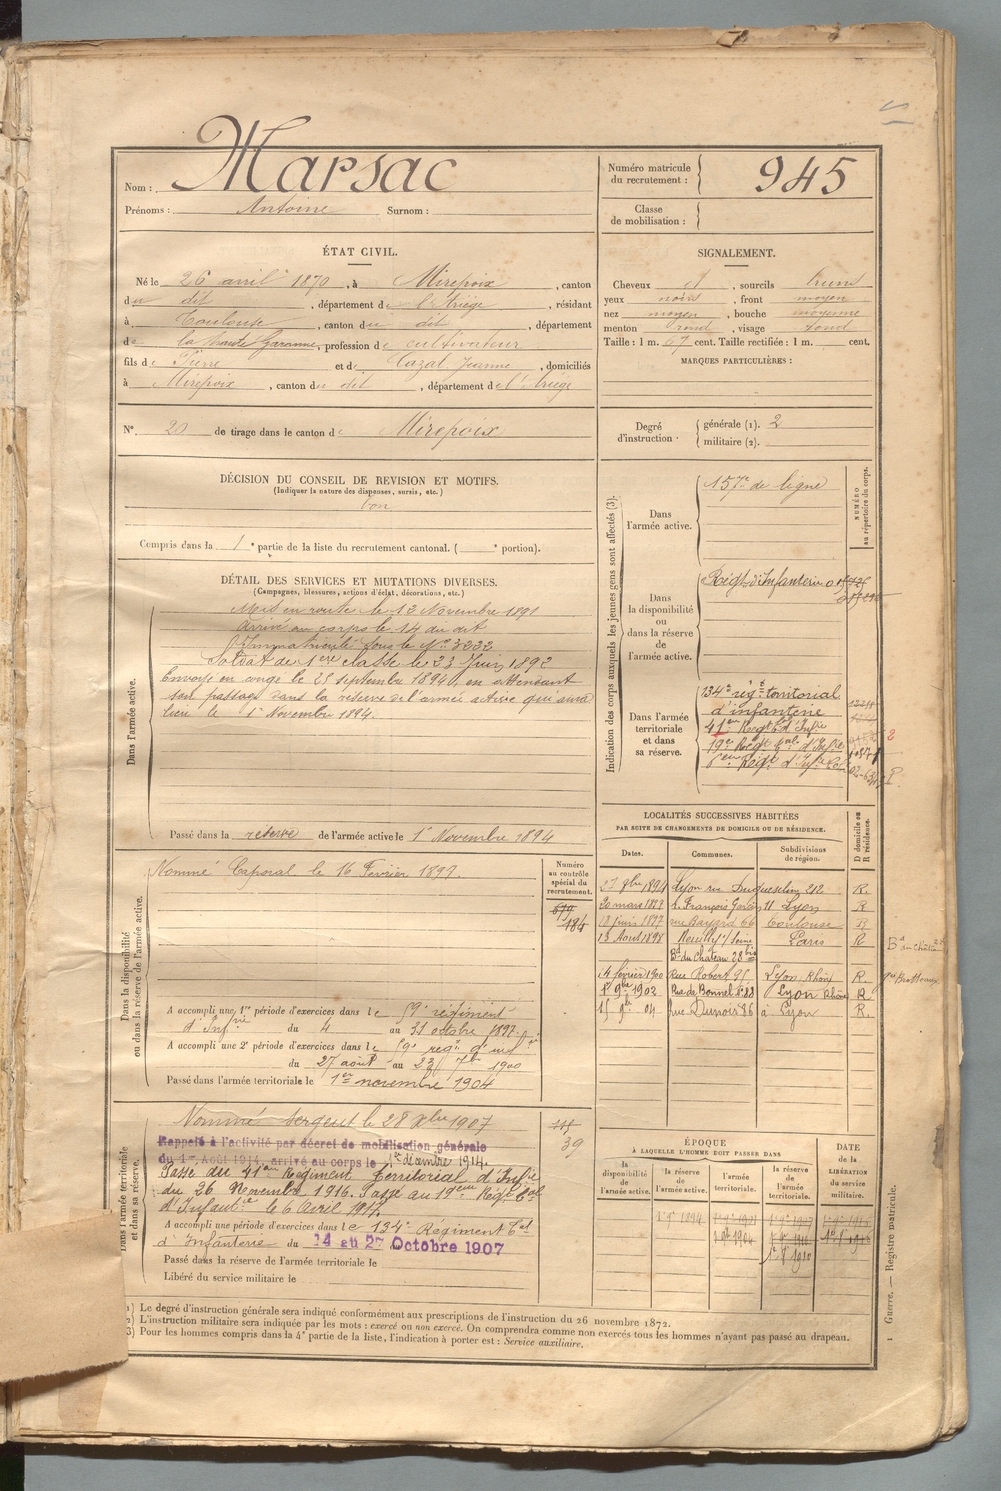 Nom : Marsac
Prénoms : Antoine Surnom :
Numéro matricule du recrutement : 945
Classe de mobilisation :
ÉTAT CIVIL.
Né le 26 avril 1870, à Mirepoix, canton
du dit, département de l'Ariège, résidant
à Toulouse, canton du dit, département
de la haute Garonne, profession de cultivateur
fils de Pierre et de Cazal Jeanne, domiciliés
à Mirepoix, canton du dit, département de l'Ariège
SIGNALEMENT.
Cheveux et, sourcils bruns
yeux noirs, front moyen
nez moyen, bouche moyenne
menton rond, visage rond
Taille : 1 m. 67 cent. Taille rectifiée : 1 m. cent.
MARQUES PARTICULIÈRES :
N° 20 de tirage dans le canton de Mirepoix
Degré d'instruction : générale (1). 2
militaire (2).
DÉCISION DU CONSEIL DE REVISION ET MOTIFS.
(Indiquer la nature des dispenses, sursis, etc.)
bon
Compris dans la 1e partie de la liste du recrutement cantonal. ( e portion).
DÉTAIL DES SERVICES ET MUTATIONS DIVERSES.
(Campagnes, blessures, actions d'éclat, décorations, etc.)
Dans l'armée active.
Mis en route le 13 Novembre 1891
Arrivé au corps le 14 du dit
Immatriculé sous le N° 3232
Soldat de 1ère classe le 23 Juin 1892
Envoyé en congé le 25 septembre 1894, en attendant
son passage dans la réserve de l'armée active qui aura
lieu le 1er Novembre 1894.
Passé dans la réserve de l'armée active le 1er Novembre 1894
Indication des corps auxquels les jeunes gens sont affectés (3).
NUMÉRO au répertoire du corps.
Dans l'armée active.
157e de ligne
Dans la disponibilité ou dans la réserve de l'armée active.
Régt d'Infanterie
Dans l'armée territoriale et dans sa réserve.
134e régt territorial
d'infanterie
41em Régt d'Infie
19e Régt tal d'Infie
LOCALITÉS SUCCESSIVES HABITÉES
PAR SUITE DE CHANGEMENTS DE DOMICILE OU DE RÉSIDENCE.
Dates. Communes. Subdivisions de région. D domicile ou R résidence.
27 9bre 1894 Lyon rue Duguesclin 212 R.
20 mars 1897 r. François Garcin 11 Lyon R
18 juin 1897 rue Bayard 66 Toulouse R
13 Aout 1898 Neuilly s/ Seine Paris R
Bd du Chateau 28 bis
14 février 1900 Rue Robert 95 Lyon, Rhône R.
1er 9bre 1902 Rue de Bonnel n° 88 Lyon Rhône R
15 9bre 04 rue Dunoir 86 à Lyon R.
Dans la disponibilité ou dans la réserve de l'armée active.
Nommé Caporal le 16 Février 1897.
Numéro au contrôle spécial du recrutement.
679
184
A accompli une 1re période d'exercices dans le 59e régiment
d'Infrie du 4 au 31 octobre 1897
A accompli une 2e période d'exercices dans le 59e regt d'infie
du 27 août au 23 7bre 1900
Passé dans l'armée territoriale le 1er novembre 1904
Dans l'armée territoriale et dans sa réserve.
Nommé Sergent le 28 Xbre 1907
39
Rappelé à l'activité par décret de mobilisation générale
du 1er Août 1914, arrivé au corps le 1er décembre 1914.
Passé au 41em Régiment Territorial d'Infie
du 26 Novembre 1916. Passé au 19em Régt tal
d'Infantie le 6 Avril 1917.
A accompli une période d'exercices dans le 134e Régiment tal
d'Infanterie du 14 au 27 Octobre 1907
Passé dans la réserve de l'armée territoriale le
Libéré du service militaire le
ÉPOQUE
À LAQUELLE L'HOMME DOIT PASSER DANS
la disponibilité de l'armée active.
la réserve de l'armée active.
l'armée territoriale.
la réserve de l'armée territoriale.
DATE de la LIBÉRATION du service militaire.
1) Le degré d'instruction générale sera indiqué conformément aux prescriptions de l'instruction du 26 novembre 1872.
2) L'instruction militaire sera indiquée par les mots : exercé ou non exercé. On comprendra comme non exercés tous les hommes n'ayant pas passé au drapeau.
3) Pour les hommes compris dans la 4e partie de la liste, l'indication à porter est : Service auxiliaire.
1 Guerre. — Registre matricule.